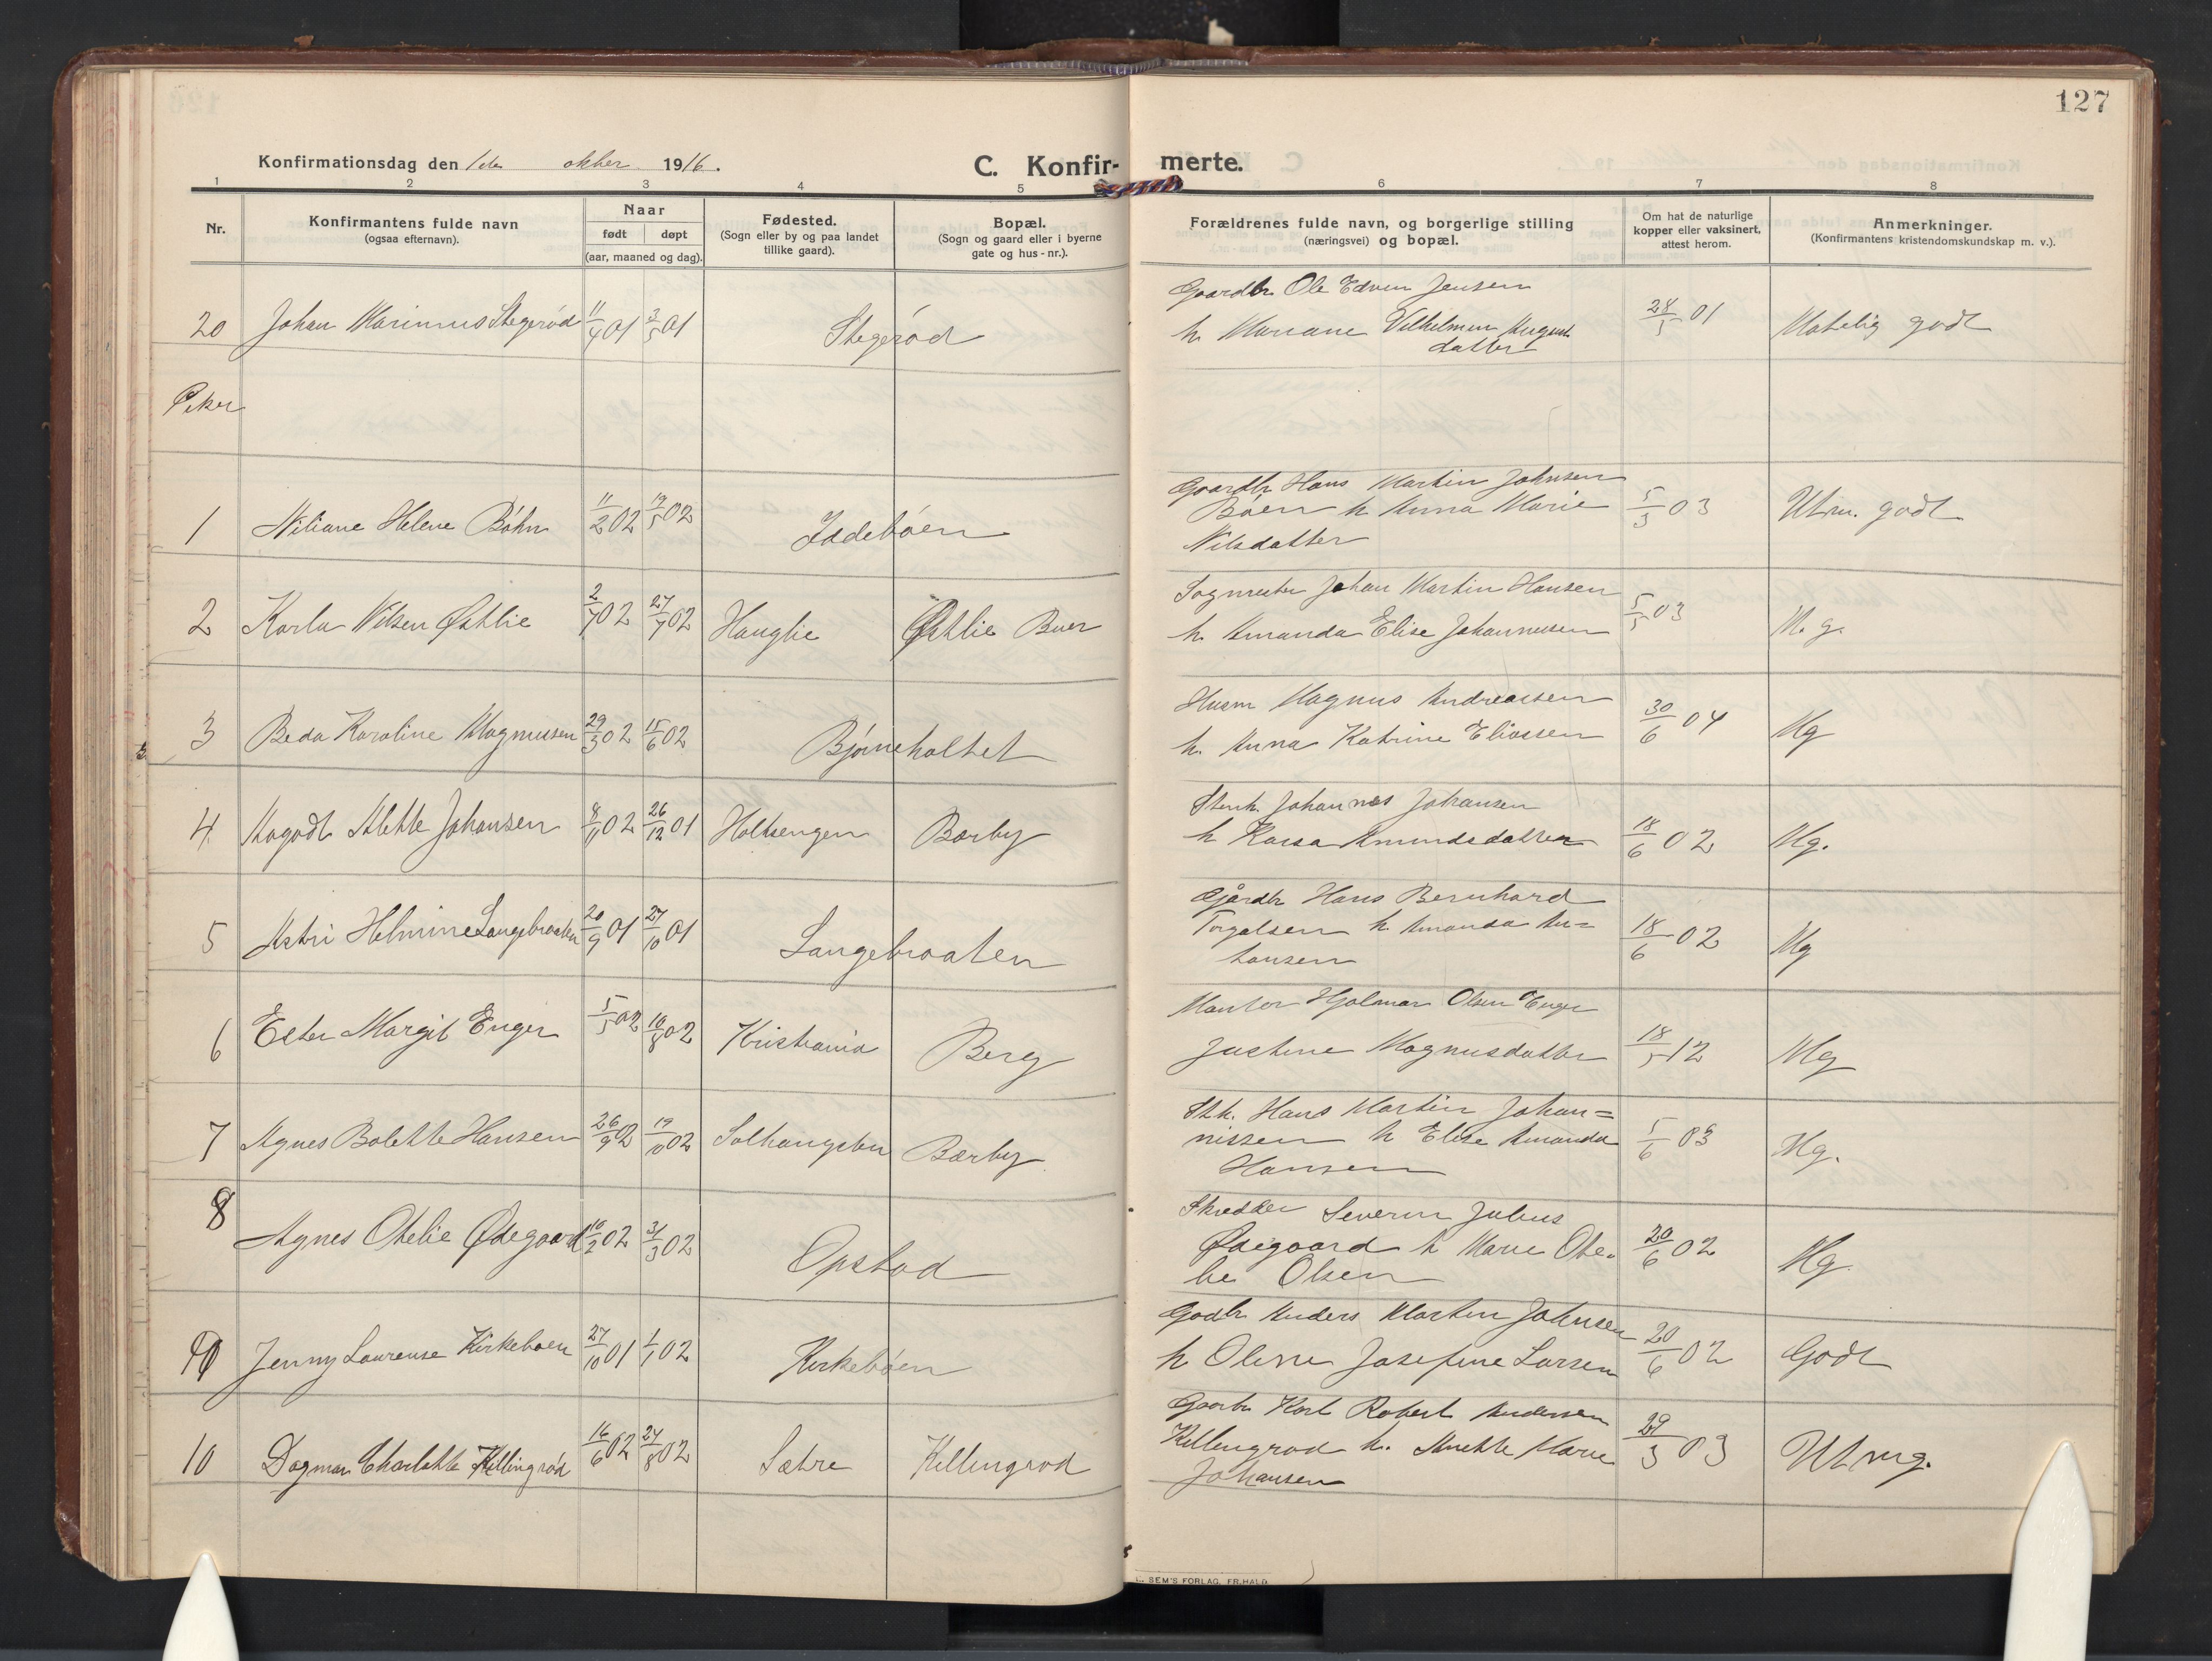 127
Konfirmationsdag den 1ste oktber 1916.
C. Konfir- merte.
1 2 3 4 5 6 7 8
Nr.
Konfirmantens fulde navn
(ogsaa efternavn).
Naar
født døpt
(aar, maaned og dag).
Fødested.
(Sogn eller by og paa landet
tillike gaard).
Bopæl.
(Sogn og gaard eller i byerne
gate og hus-nr.).
Forældrenes fulde navn, og borgerlige stilling
(næringsvei) og bopæl.
Om hat de naturlige
kopper eller vaksinert,
attest herom.
Anmerkninger.
(Konfirmantens kristendomskundskap m. v.).
Gaardbr Ole Edvin Jensen
20 Johan Marinius Stegerød 11/4 01 3/5 01 Stegerød h. Mariane Vilhelmine August 28/5 01 Matelig godt
datter
Piker
Gaardbr Hans Martin Johnsen
1 Niliane Helene Bøhn 11/2 02 19/5 02 Idebøen Bøen h Anna Marie 5/3 03 Utm. godt
Nilsdatter
Sagmester Johan Martin Hansen
2 Karla Nilsen Østlie 2/7 02 27/7 02 Hauglie Østlie Buer h. Amanda Elise Johannesen 5/5 03 M. g.
Husm Magnus Andreassen
3 Beda Karoline Magnusen 29/3 02 15/6 02 Bjørneholtet h. Anna Katrine Eliassen 30/6 04 Mg
Stenh Johannes Johansen
4 Aagodt Alette Johansen 8/11 02 26/12 01 Holtsengen Bærby h Kaisa Amundsdatter 18/6 02 Mg.
Gårdbr Hans Bernhard
5 Astri Helmine Langebraaten 20/9 01 27/10 01 Langebraaten Torgalsen h Amanda An= 18/6 02 Mg
tonsen
Hjalmar Olsen Enger
6 Ester Margit Enger 5/5 02 10/8 02 Kristiania Berg Justine Magnusdatter 18/5 12 Mg
Sth. Hans Martin Johan=
7 Agnes Bolette Hansen 26/9 02 19/10 02 Solhaugstu Bærby nissen h Elise Amanda 5/6 03 Mg.
Hansen
Skredder Severin Julius
8 Agnes Otelie Ødegaard 10/2 02 31/3 02 Opstad Ødegaard h Marie Ote- 20/6 02 Mg.
lie Olsen
Gadbr Anders Martin Johnsen
9 Jenny Laurense Kirkebøen 27/10 01 1/1 02 Kirkebøen h Oline Josefine Larsen 20/6 02 Godt
Gaarbr Karl Robert Andersen
10 Dagmar Charlotte Killingrød 16/6 02 24/8 02 Sætre Killingrød Killingrød h. Anette Marie 29/3 03 Utmg.
Johansen
SEM'S FORLAG, FR.HALD